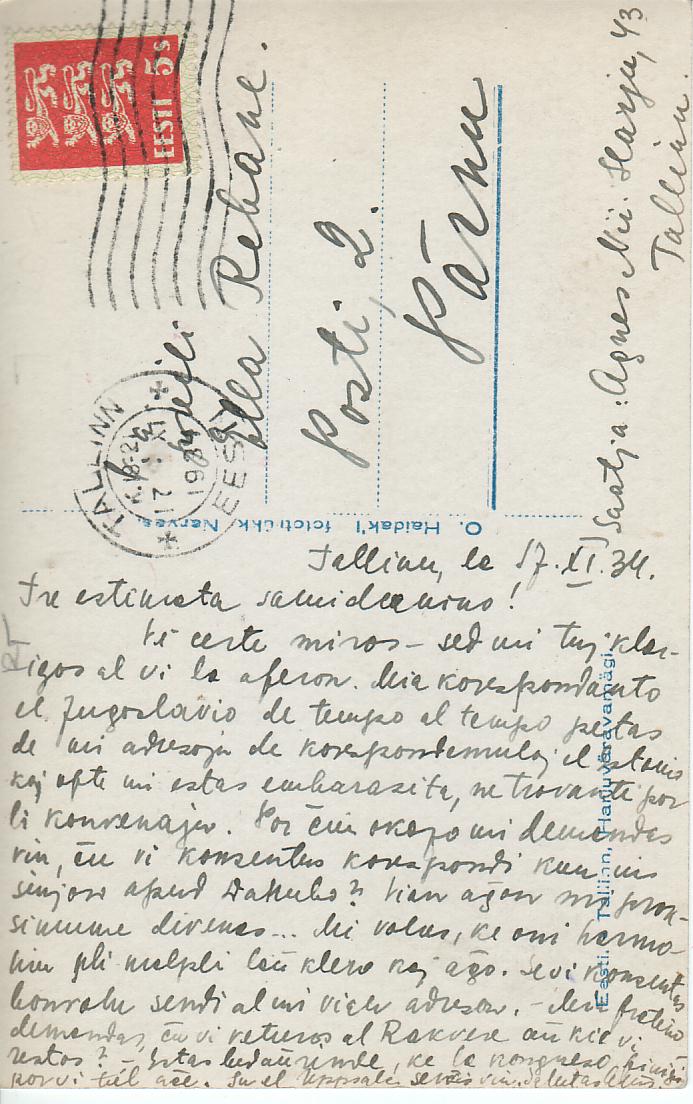 EESTI 5 s
TALLINN EESTI
XI
1934
Preili
Ella Rebane.
Posti, 2.
Pärnu
Saatja: Agnes Nii. Harju, 43
Tallinn.
O. Haidak'i fototrükk Narvas.
Eesti. Tallinn, Harjuväravamägi.
Tallinn, la 17. XI. 34.
Tre estimata samideanino!
Vi certe miros – sed mi tuj kla-
rigos al vi la aferon. Mia korespondanto
el Jugoslavio de tempo al tempo petas
de mi adresojn de korespondemuloj el
kaj ofte mi estas embarasita, ne trovante por
li konvenajn. Por ĉiu okazo mi demandas
vin, ĉu vi konsentus korespondi kun
sinjoro apud Danubo? Vian aĝon mi
divenas... Mi volas, ke oni harmo-
niu pli malpli laŭ klero kaj aĝo. Se vi konsentas
bonvolu sendi al mi vian adreson. –
demandas, ĉu vi veturos al Rakvere aŭ kie vi
restos? – Estas bedaŭrinde, ke la kongreso
por vi tiel